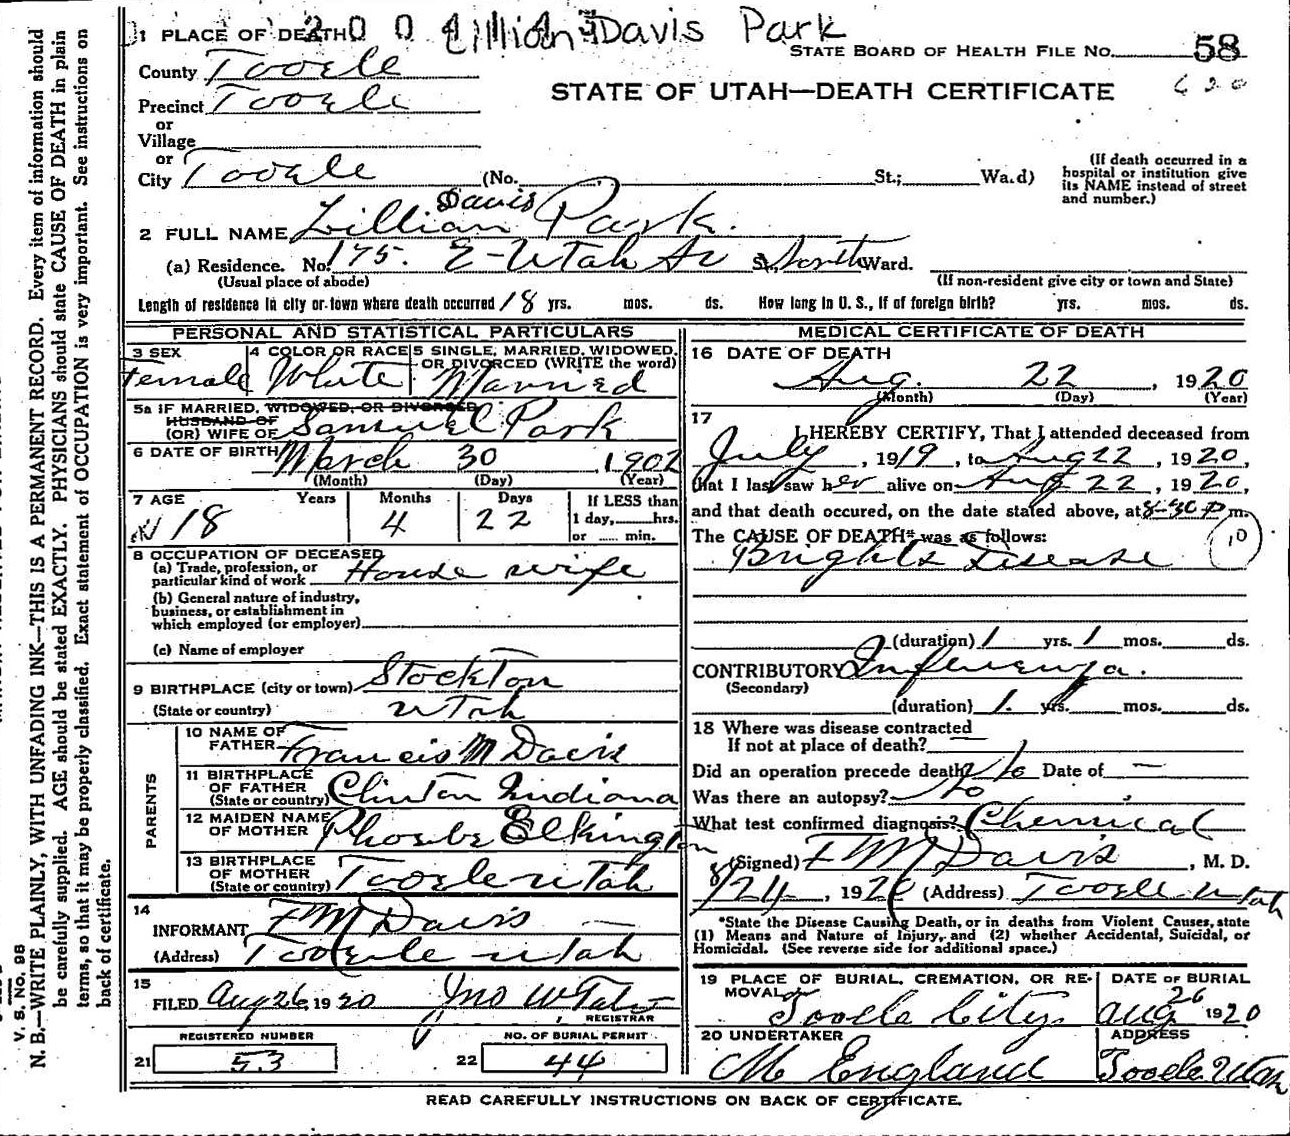 1 PLACE OF DEATH 200 Lillian Davis Park
STATE BOARD OF HEALTH FILE NO. 58
County Tooele
STATE OF UTAH—DEATH CERTIFICATE 620
Precinct Tooele
or
Village
or
City Tooele (No. St.; Wa.d)
(If death occurred in a
hospital or institution give
its NAME instead of street
and number.)
2 FULL NAME Lillian Davis Park.
(a) Residence. No. 175. E-Utah Av St. North Ward.
(Usual place of abode) (If non-resident give city or town and State)
Length of residence in city or town where death occurred 18 yrs. mos. ds. How long in U. S., if of foreign birth? yrs. mos. ds.
PERSONAL AND STATISTICAL PARTICULARS
3 SEX 4 COLOR OR RACE 5 SINGLE, MARRIED, WIDOWED,
OR DIVORCED (WRITE the word)
Female White Married
5a IF MARRIED, WIDOWED, OR DIVORCED
HUSBAND OF
(OR) WIFE OF Samuel Park
6 DATE OF BIRTH March 30 1902
(Month) (Day) (Year)
7 AGE Years Months Days If LESS than
18 4 22 1 day, hrs.
or min.
8 OCCUPATION OF DECEASED
(a) Trade, profession, or
particular kind of work House wife
(b) General nature of industry,
business, or establishment in
which employed (or employer)
(c) Name of employer
9 BIRTHPLACE (city or town) Stockton
(State or country) Utah
PARENTS
10 NAME OF
FATHER Francis M Davis
11 BIRTHPLACE
OF FATHER
(State or country) Clinton Indiana
12 MAIDEN NAME
OF MOTHER Phoebe Elkington
13 BIRTHPLACE
OF MOTHER
(State or country) Tooele Utah
14
INFORMANT F M Davis
(Address) Tooele Utah
15
FILED Aug 26, 1920 Jno W Tate
REGISTRAR
REGISTERED NUMBER NO. OF BURIAL PERMIT
21 53 22 44
MEDICAL CERTIFICATE OF DEATH
16 DATE OF DEATH
Aug. 22, 1920
(Month) (Day) (Year)
17
I HEREBY CERTIFY, That I attended deceased from
July, 1919, to Aug 22, 1920,
that I last saw her alive on Aug 22, 1920,
and that death occured, on the date stated above, at 8-30 P m.
The CAUSE OF DEATH* was as follows: 10
Brights Disease
(duration) 1 yrs. 1 mos. ds.
CONTRIBUTORY Influenza.
(Secondary)
(duration) 1. yrs. mos. ds.
18 Where was disease contracted
If not at place of death? —
Did an operation precede death? No Date of —
Was there an autopsy? No
What test confirmed diagnosis? Chemical
(Signed) F M Davis, M. D.
8/24, 1920 (Address) Tooele Utah
*State the Disease Causing Death, or in deaths from Violent Causes, state
(1) Means and Nature of Injury, and (2) whether Accidental, Suicidal, or
Homicidal. (See reverse side for additional space.)
19 PLACE OF BURIAL, CREMATION, OR RE-
MOVAL Tooele City.
DATE OF BURIAL
Aug 26 1920
20 UNDERTAKER ADDRESS
M England Tooele Utah
READ CAREFULLY INSTRUCTIONS ON BACK OF CERTIFICATE.
V. S. No. 98
N. B.—WRITE PLAINLY, WITH UNFADING INK—THIS IS A PERMANENT RECORD. Every item of information should
be carefully supplied. AGE should be stated EXACTLY. PHYSICIANS should state CAUSE OF DEATH in plain
terms, so that it may be properly classified. Exact statement of OCCUPATION is very important. See instructions on
back of certificate.